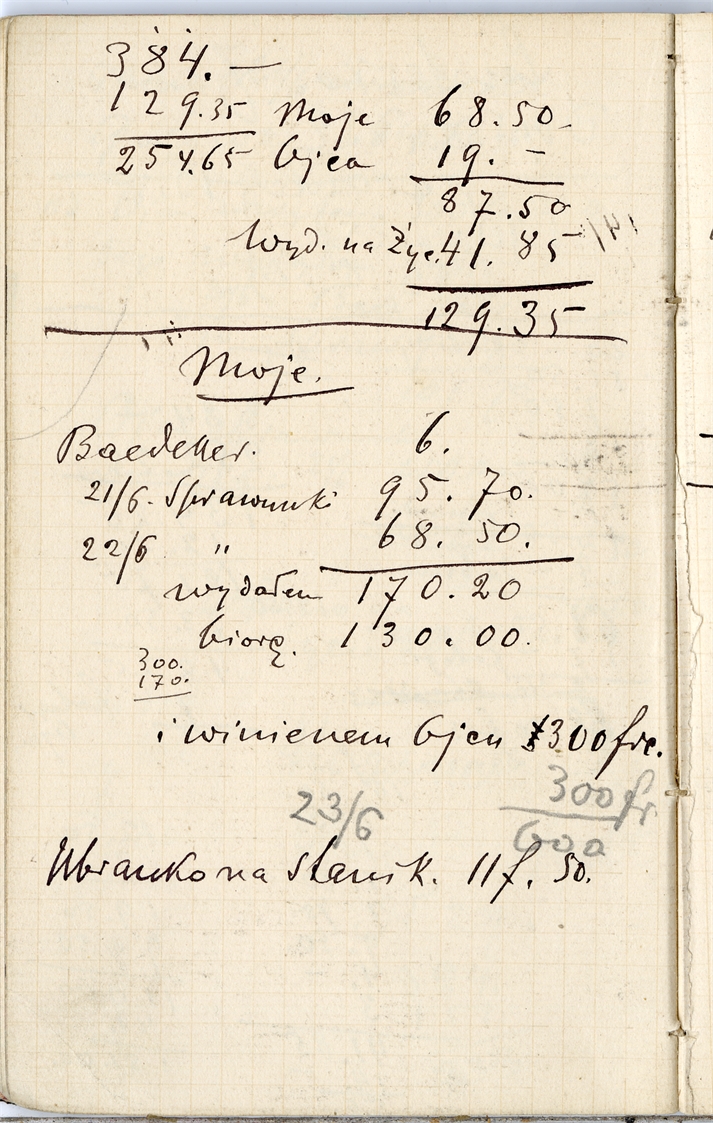 384.—
129.35 Moje 68.50
254.65 Ojca 19.—
87.50
Wyd. na Życ. 41.85
129.35
Moje.
Baedeker. 6.
21/6. Sprawunki 95.70.
22/6 " 68.50.
wydałem 170.20
biorę. 130.00.
300.
170.
i winienem Ojcu 300 frc.
300 fr
23/6
600
Ubranko na Stasik. 11 f. 50.